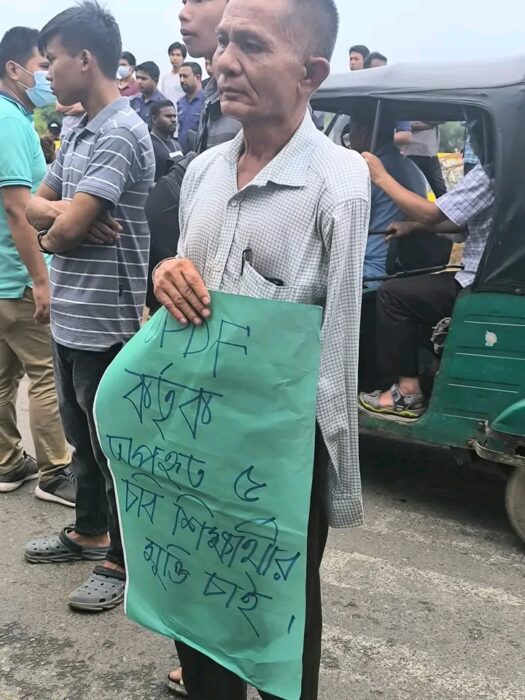 UPDF
কর্তৃক
অপহৃত ৫
চবি শিক্ষার্থীর
মুক্তি চাই।